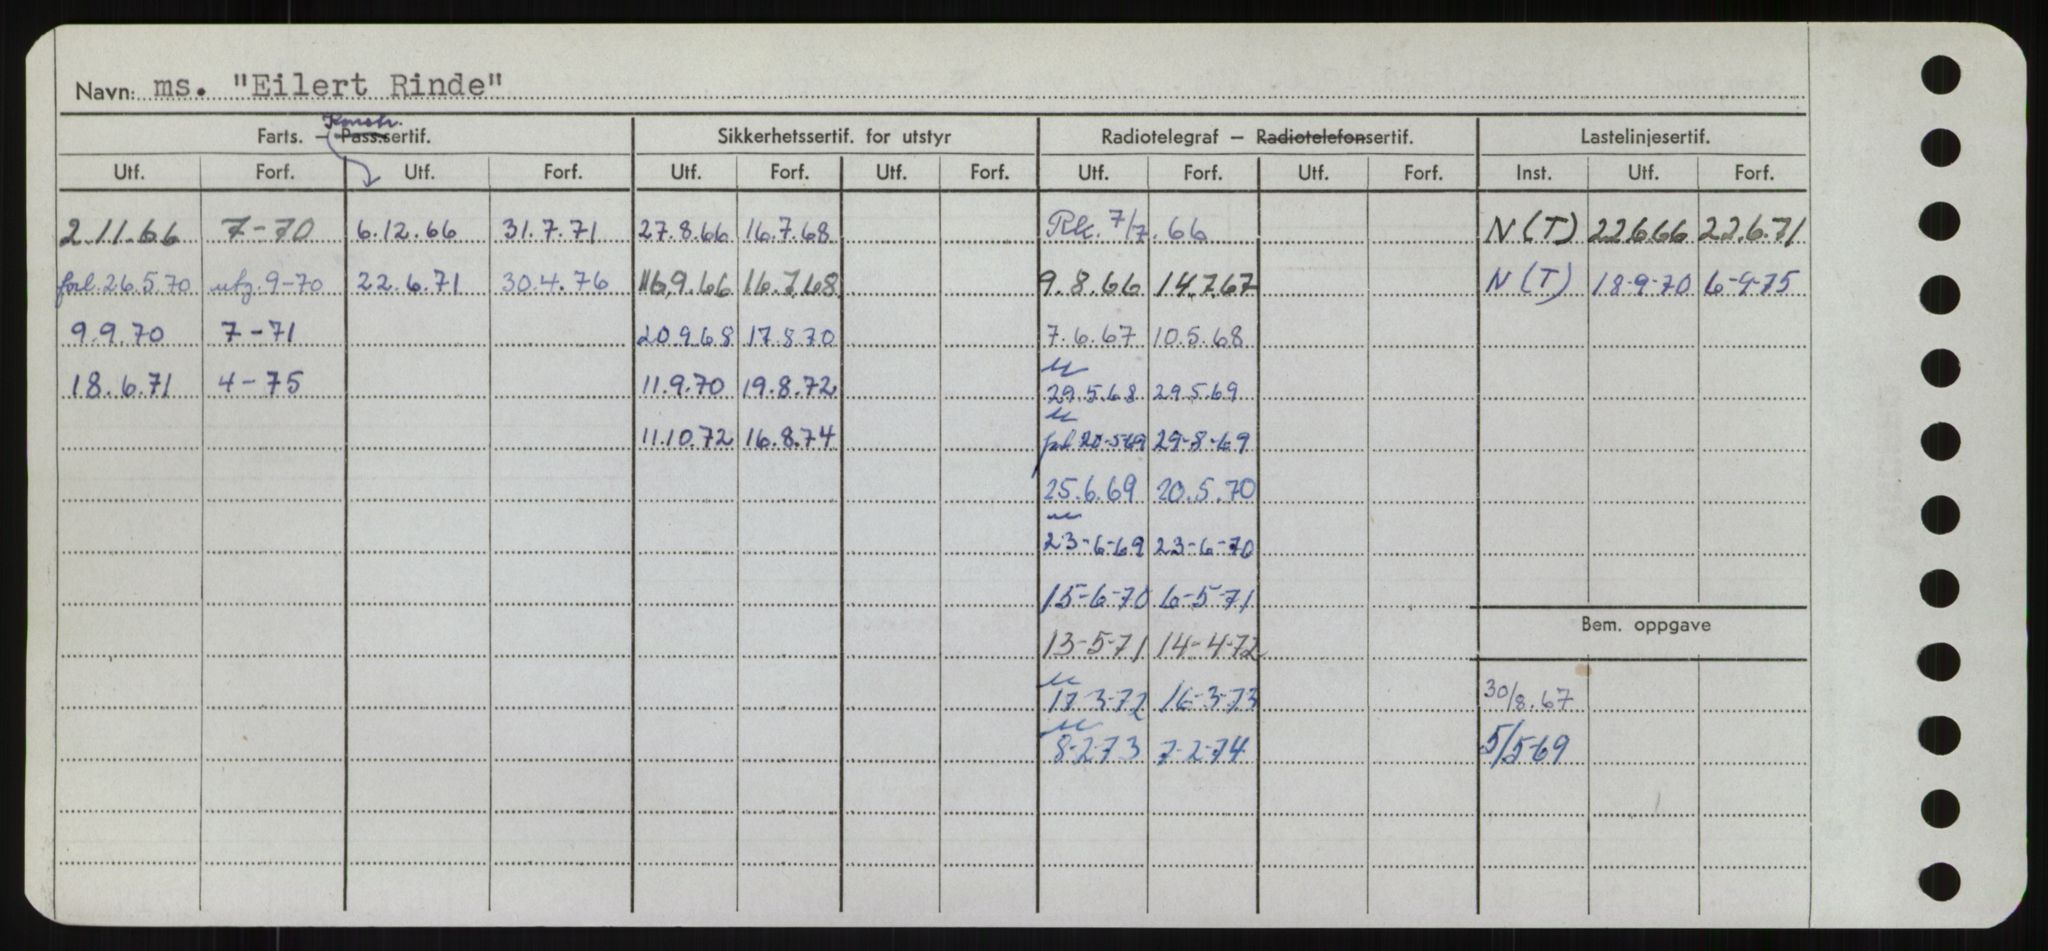 Navn: ms. "Eilert Rinde"
Konstr.
Farts. — Pass.sertif. Sikkerhetssertif. for utstyr Radiotelegraf — Radiotelefonsertif. Lastelinjesertif.
Utf. Forf. Utf. Forf. Utf. Forf. Utf. Forf. Utf. Forf. Utf. Forf. Inst. Utf. Forf.
2.11.66 7-70 6.12.66 31.7.71 27.8.66 16.7.68 Rk. 7/7.66 N(T) 22.6.66 22.6.71
forl. 26.5.70 utg. 9-70 22.6.71 30.4.76 16.9.66 16.7.68 9.8.66 14.7.67 N(T) 18-9-70 6-9-75
9.9.70 7-71 20.9.68 17.8.70 7.6.67 10.5.68
18.6.71 4-75 11.9.70 19.8.72 29.5.68 29.5.69
11.10.72 16.8.74 forl. 20-5-69 29-8-69
25.6.69 20.5.70
23-6-69 23-6-70
15-6-70 6-5-71
Bem. oppgave
13-5-71 14-4-72
17-3-72 16-3-73 30/8.67
8-2-73 7-2-74 5/5-69